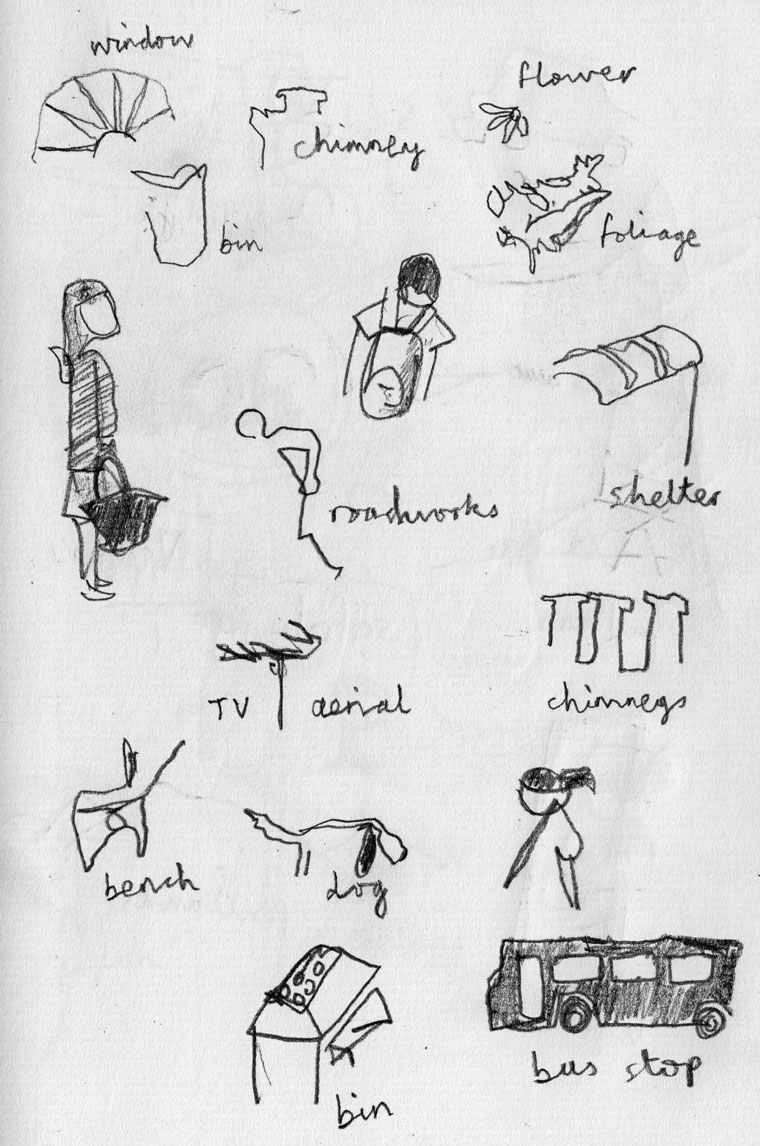 window
flower
chimney
bin
foliage
shelter
roadworks
TV aerial
chimneys
bench
dog
bin
bus stop